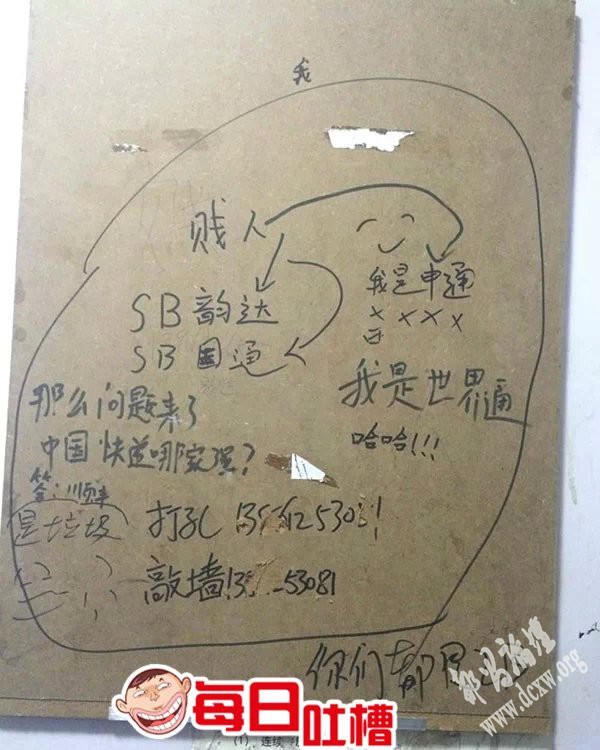 我
贱人
我是申通
SB韵达
××××
SB国通
我是世界通
那么问题来了
哈哈!!!
中国快递哪家强?
答:顺丰
是垃圾
打孔
敲墙
53081
你们都
每日吐槽
www.dcxw.org
(1)、连续